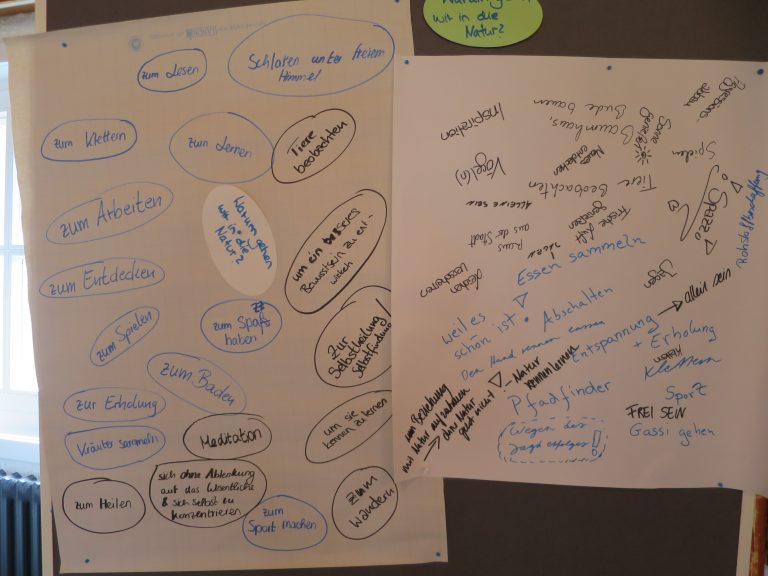 wir in die
Natur?
zum Lesen
Schlafen unter freiem
Himmel
zum Klettern
zum Lernen
Tiere
beobachten
zum Arbeiten
Warum gehen
wir in die
Natur?
um ein besseres
Bewusstsein zu er-
zum Entdecken
zum Spielen
zum Spaß
haben
Zur
Selbstheilung/
Selbstfindung
zum Baden
zur Erholung
Meditation
um sie
kennen zu lernen
Kräuter sammeln
zum Heilen
sich ohne Ablenkung
auf das Wesentliche
& sich selbst zu
konzentrieren
zum
Sport machen
zum
Wandern
abbauen
Bude bauen
Baumhaus,
Inspiration
Sonne
genießen
Spielen
Neues
entdecken
Vögel(n)
Tiere Beobachten
ALLEINE SEIN
Frische Luft
genießen
Raus
aus der Stadt
Rohstoffbeschaffung
Essen sammeln
Jagen
allein sein
weil es
schön ist
Abschalten
Den Hund rennen lassen
Entspannung
+ Erholung
Natur
kennenlernen
um Beziehung
mit Natur aufzubauen
ohne Natur
geht nicht
Pfadfinder
Klettern
Sport
FREI SEIN
Gassi gehen
Wegen des
Jagderfolges!